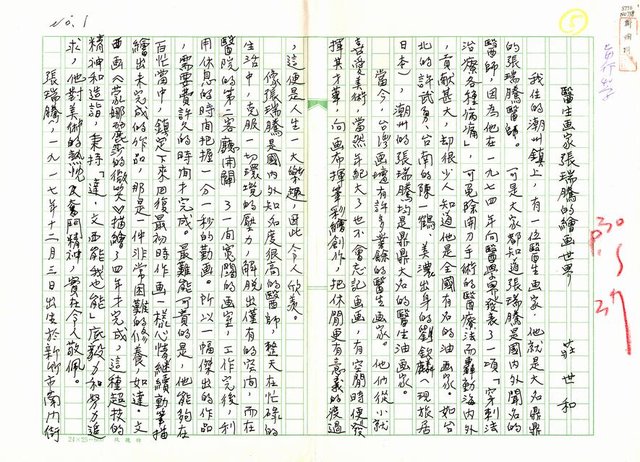 No. 1
5
醫生画家張瑞騰的繪画世界
莊世和
我住的潮州鎮上，有一位醫生画家，他就是大名鼎鼎
的張瑞騰醫師。可是大家都知道張瑞騰是國內外聞名的
醫師，因為他在一九七四年向醫學界發表了一項「穿刺法
治療各種病痛」，可免除用刀手術的醫療法而轟動海內外，
貢献甚大，却很少人知道他是全國有名的油画家。如台
北的許武勇、台南的陳一鶴、美濃出身的劉欽麟（現旅居
日本），潮州的張瑞騰均是鼎鼎大名的醫生油画家。
當今，台灣画壇有許多業餘的醫生画家。他們從小就
喜愛美術，當然年紀大了也不會忘記画画，有空閒時便發
揮其才華，向画布揮筆彩繪創作，把休閒更有意義的渡過
，這便是人生一大樂趣，因此令人欣羨。
像張瑞騰是國內外知名度很高的醫師，整天在忙碌的
生活中，克服一切環境的壓力，解脫出僅有的空間，而在
醫院的第二客廳開闢了一間寬闊的画室，工作完後，利
用休息的時間把握一分一秒的動画。所以一幅傑出的作品
，需要費許久的時間才完成。最難能可貴的是，他能夠在
百忙當中，鎮定下來回復最初時作画一樣心情繼續動筆描
繪出未完成的作品，那是一件非常困難的修養，如達·文
西画《蒙娜麗莎的微笑》描繪了四年才完成，這種超技的
精神和造詣，秉持「達·文西能我也能」底毅力和努力追
求，他對美術的熱忱及奮鬥精神，實在令人敬佩。
張瑞騰，一九一七年十二月三日出生於新竹市南門街
24×25=600